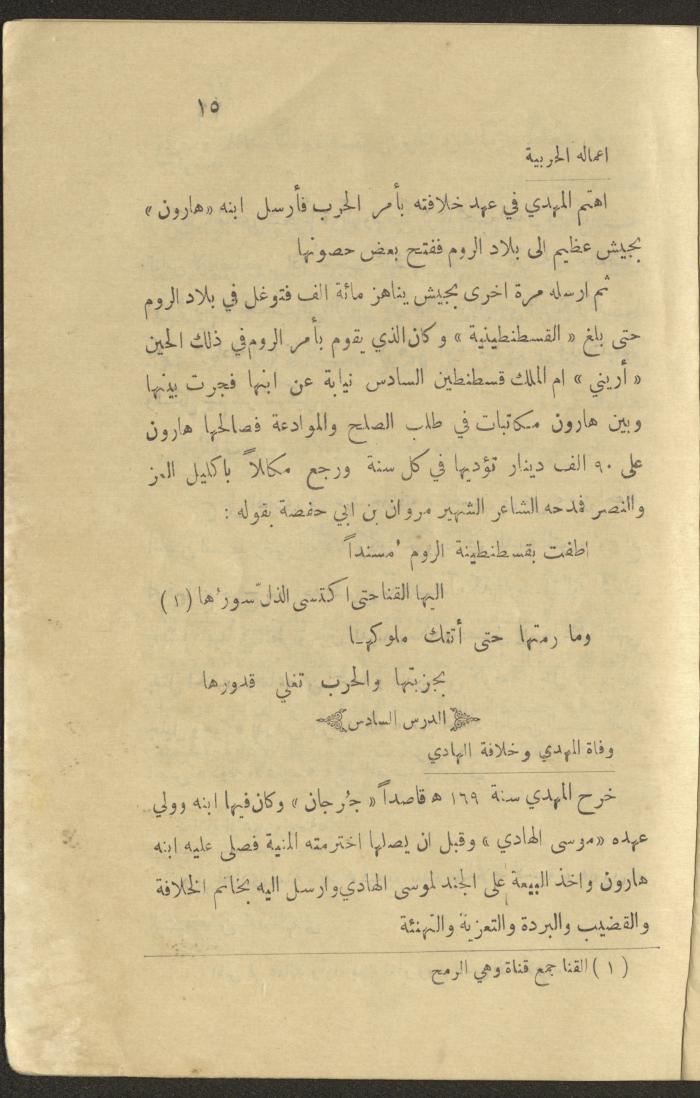 ١٥
اعماله الحربية
اهتم المهدي في عهد خلافته بأمر الحرب فأرسل ابنه «هارون»
بجيش عظيم الى بلاد الروم ففتح بعض حصونها
ثم ارسله مرة اخرى بجيش يناهز مائة الف فتوغل في بلاد الروم
حتى بلغ « القسطنطينية » وكان الذي يقوم بأمر الروم في ذلك الحين
« أريني » ام الملك قسطنطين السادس نيابة عن ابنها فجرت بينها
وبين هارون مكاتبات في طلب الصلح والموادعة فصالحها هارون
على ٩٠ الف دينار تؤديها في كل سنة ورجع مكللاً باكليل العز
والنصر فمدحه الشاعر الشهير مروان بن ابي حفصة بقوله :
اطفت بقسطنطينة الروم مُسنداً
اليها القنا حتى اكتسى الذلّ سورُها (١)
وما رمتها حتى أتتك ملوكها
بجزيتها والحرب تغلي قدورها
الدرس السادس
وفاة المهدي وخلافة الهادي
خرج المهدي سنة ١٦٩ ه قاصداً « جُرجان » وكان فيها ابنه وولي
عهده «موسى الهادي » وقبل ان يصلها اخترمته المنية فصلى عليه ابنه
هارون واخذ البيعة على الجند لموسى الهادي وارسل اليه بخاتم الخلافة
والقضيب والبردة والتعزية والتهنئة
(١) القنا جمع قناة وهي الرمح